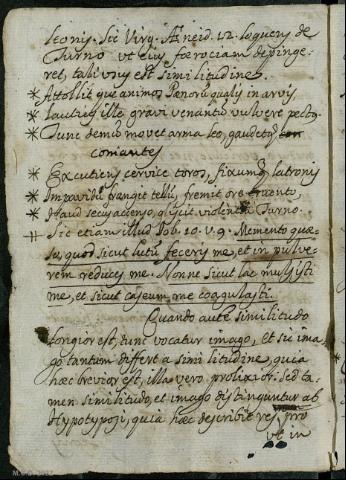 leonis. Sic Virg. Æneid. 12. loquens de
Turno vt eius ferociam depinge-
ret, tali vsus est similitudine.
* Attollit que animos Pænorũ qualis in arvis
* Saucius ille gravi venantũ vulnere pectus
* Tunc demũ movet arma leo, gaudetq
comantes
* Excutiens cervice toros, fixumq latronis
* Impavidus frangit telũ, fremit ore cruento,
* Haud secus accenso gliscit violentia Turno.
Sic etiam illud Job. 10. v. 9. Memento quæ-
so, quod sicut lutũ feceris me, et in pulve-
rem reduces me. Nonne sicut lac mulsisti
me, et sicut caseum me coagulasti.
Quando autẽ similitudo
longior est, tunc vocatur imago, et sic ima-
go tantum differt a similitudine, quia
hæc brevior est, illa vero prolixior. Sed ta-
men similitudo, et imago distinguntur ab
Hypotyposi, quia hæc describit res pro
vt in